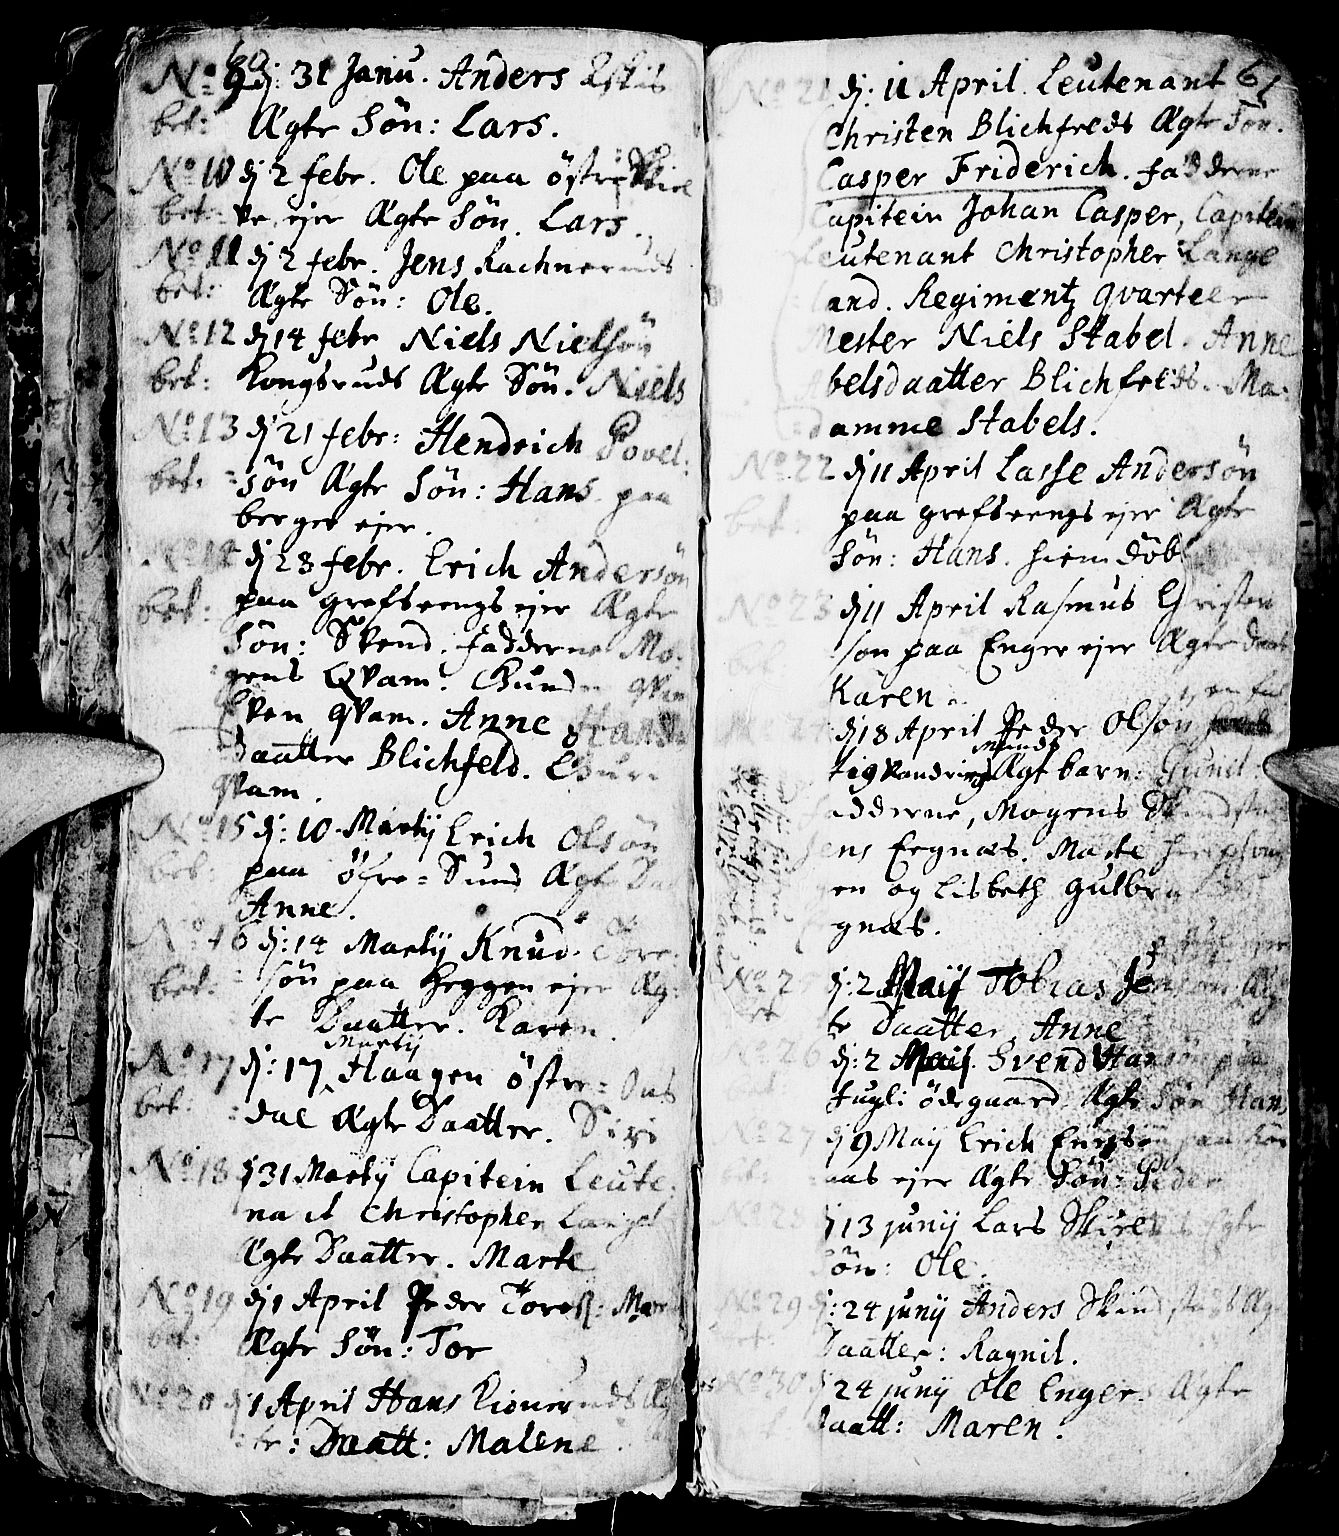 60
No 9 dj: 31 Janu. Anders
bet: Ægte Sön: Lars.
No 10 dj 2 febr. Ole paa östre
bet: ejer Ægte Sön. Lars.
No 11 dj 2 febr. Jens Rachneruds
bet: Ægte Sön: Ole.
No 12 dj 14 febr Niels Nielsön
bet: Kongsruds Ægte Sön. Niels
No 13 dj 21 febr: Hendrich Povel:
bet: sön Ægte Sön: Hans paa
berget ejer.
No 14 dj 28 febr. Erich Andersön
bet: paa grefseengs ejer Ægte
Sön: Svend. fadderne Mo:
gens Qvam.
qvam. Anne Hans
Daatter Blichfeld.
qvam.
No 15 dj: 10 Martij Erich Olsön
bet: paa öfre-Sund Ægte
Anne.
No 16 dj: 14 Martij Knud Tore
bet: sön paa Heggen ejer Æg:
te Daatter. Karen.
Martij
No 17 dj: 17 Haagen östre=
bet: dal Ægte Daatter. Siri
No 18 dj 31 Martij Capitein Leute:
nant Christopher Lange
Ægte Daatter. Marte
No 19 dj 1 April Peder
bet: Ægte Sön: Tor
No 20 dj 1 April Hans Æg
te: Daatt: Malene.
61
No 21 dj: 11 April. Leutenant
Christen Blichfeds Ægte Sön.
Casper Friderich. fadderne
Capitein Johan Casper, Capitein
Leutenant Christopher Lange
land. Regimentz qvarteer
Mester Niels Stabel. Anne
Abelsdaatter Blichfelds. Ma:
damme Stabels.
No 22 dj 11 April Lasse Andersön
bet. paa grefseengs ejer Ægte
Sön: Hans. hiemdöbt
No 23 dj 11 April Rasmus Christen
bet son paa Enger ejer Ægte Daat
Karen.
dj 18 April Peder Olsön
tig Vandrings Mands Ægt barn: Gunil.
fadderne, Mogens
Jens Eegnæs. Marte
gen og Lisbeth Gulbra
gnæs.
No 25 dj: 2 Maij Tobias Jenson Æg
te Daatter, Anne
No 26 dj: 2 Maij. Svend Hansön paa
bet: fugli ödegaard Ægte Sön Hans
No 27 dj 9 Maij Erich paa
bet: ejer Ægte Sön: Peder
No 28 dj 13 junij Lars Ægte
Sön: Ole.
No 29 dj: 24 junij Anders Æg
Daatter: Ragnil.
No 30 dj 24 junij Ole Enger. Ægte
Daatt: Maren.